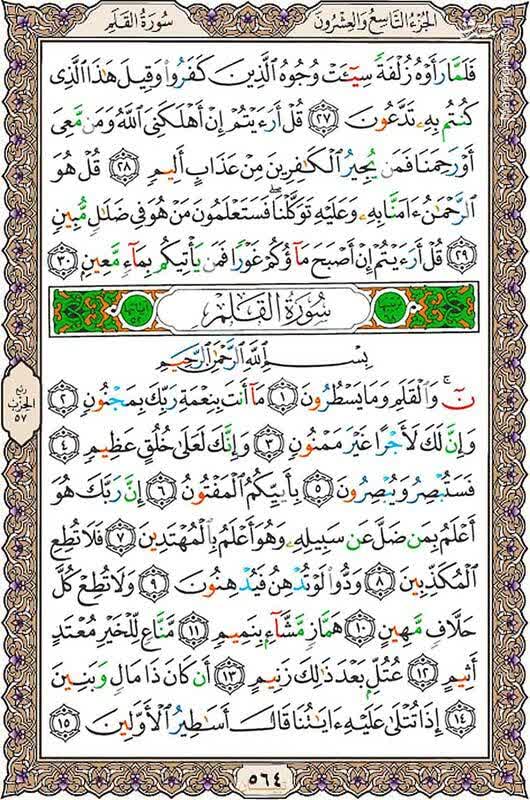 الجزء التاسع والعشرون
سورة القلم
فَلَمَّا رَأَوْهُ زُلْفَةً سِيٓـَٔتْ وُجُوهُ ٱلَّذِينَ كَفَرُوا۟ وَقِيلَ هَٰذَا ٱلَّذِى
كُنتُم بِهِۦ تَدَّعُونَ ٢٧ قُلْ أَرَءَيْتُمْ إِنْ أَهْلَكَنِىَ ٱللَّهُ وَمَن مَّعِىَ
أَوْ رَحِمَنَا فَمَن يُجِيرُ ٱلْكَٰفِرِينَ مِنْ عَذَابٍ أَلِيمٍ ٢٨ قُلْ هُوَ
ٱلرَّحْمَٰنُ ءَامَنَّا بِهِۦ وَعَلَيْهِ تَوَكَّلْنَا ۖ فَسَتَعْلَمُونَ مَنْ هُوَ فِى ضَلَٰلٍ مُّبِينٍ
٢٩ قُلْ أَرَءَيْتُمْ إِنْ أَصْبَحَ مَآؤُكُمْ غَوْرًا فَمَن يَأْتِيكُم بِمَآءٍ مَّعِينٍۭ ٣٠
سورة القلم
بِسْمِ ٱللَّهِ ٱلرَّحْمَٰنِ ٱلرَّحِيمِ
نٓ ۚ وَٱلْقَلَمِ وَمَا يَسْطُرُونَ ١ مَآ أَنتَ بِنِعْمَةِ رَبِّكَ بِمَجْنُونٍ ٢
وَإِنَّ لَكَ لَأَجْرًا غَيْرَ مَمْنُونٍ ٣ وَإِنَّكَ لَعَلَىٰ خُلُقٍ عَظِيمٍ ٤
فَسَتُبْصِرُ وَيُبْصِرُونَ ٥ بِأَييِّكُمُ ٱلْمَفْتُونُ ٦ إِنَّ رَبَّكَ هُوَ
أَعْلَمُ بِمَن ضَلَّ عَن سَبِيلِهِۦ وَهُوَ أَعْلَمُ بِٱلْمُهْتَدِينَ ٧ فَلَا تُطِعِ
ٱلْمُكَذِّبِينَ ٨ وَدُّوا۟ لَوْ تُدْهِنُ فَيُدْهِنُونَ ٩ وَلَا تُطِعْ كُلَّ
حَلَّافٍ مَّهِينٍ ١٠ هَمَّازٍ مَّشَّآءٍۭ بِنَمِيمٍ ١١ مَّنَّاعٍ لِّلْخَيْرِ مُعْتَدٍ
أَثِيمٍ ١٢ عُتُلٍّۭ بَعْدَ ذَٰلِكَ زَنِيمٍ ١٣ أَن كَانَ ذَا مَالٍ وَبَنِينَ
١٤ إِذَا تُتْلَىٰ عَلَيْهِ ءَايَٰتُنَا قَالَ أَسَٰطِيرُ ٱلْأَوَّلِينَ ١٥
ربع
الحزب
٥٧
٥٦٤